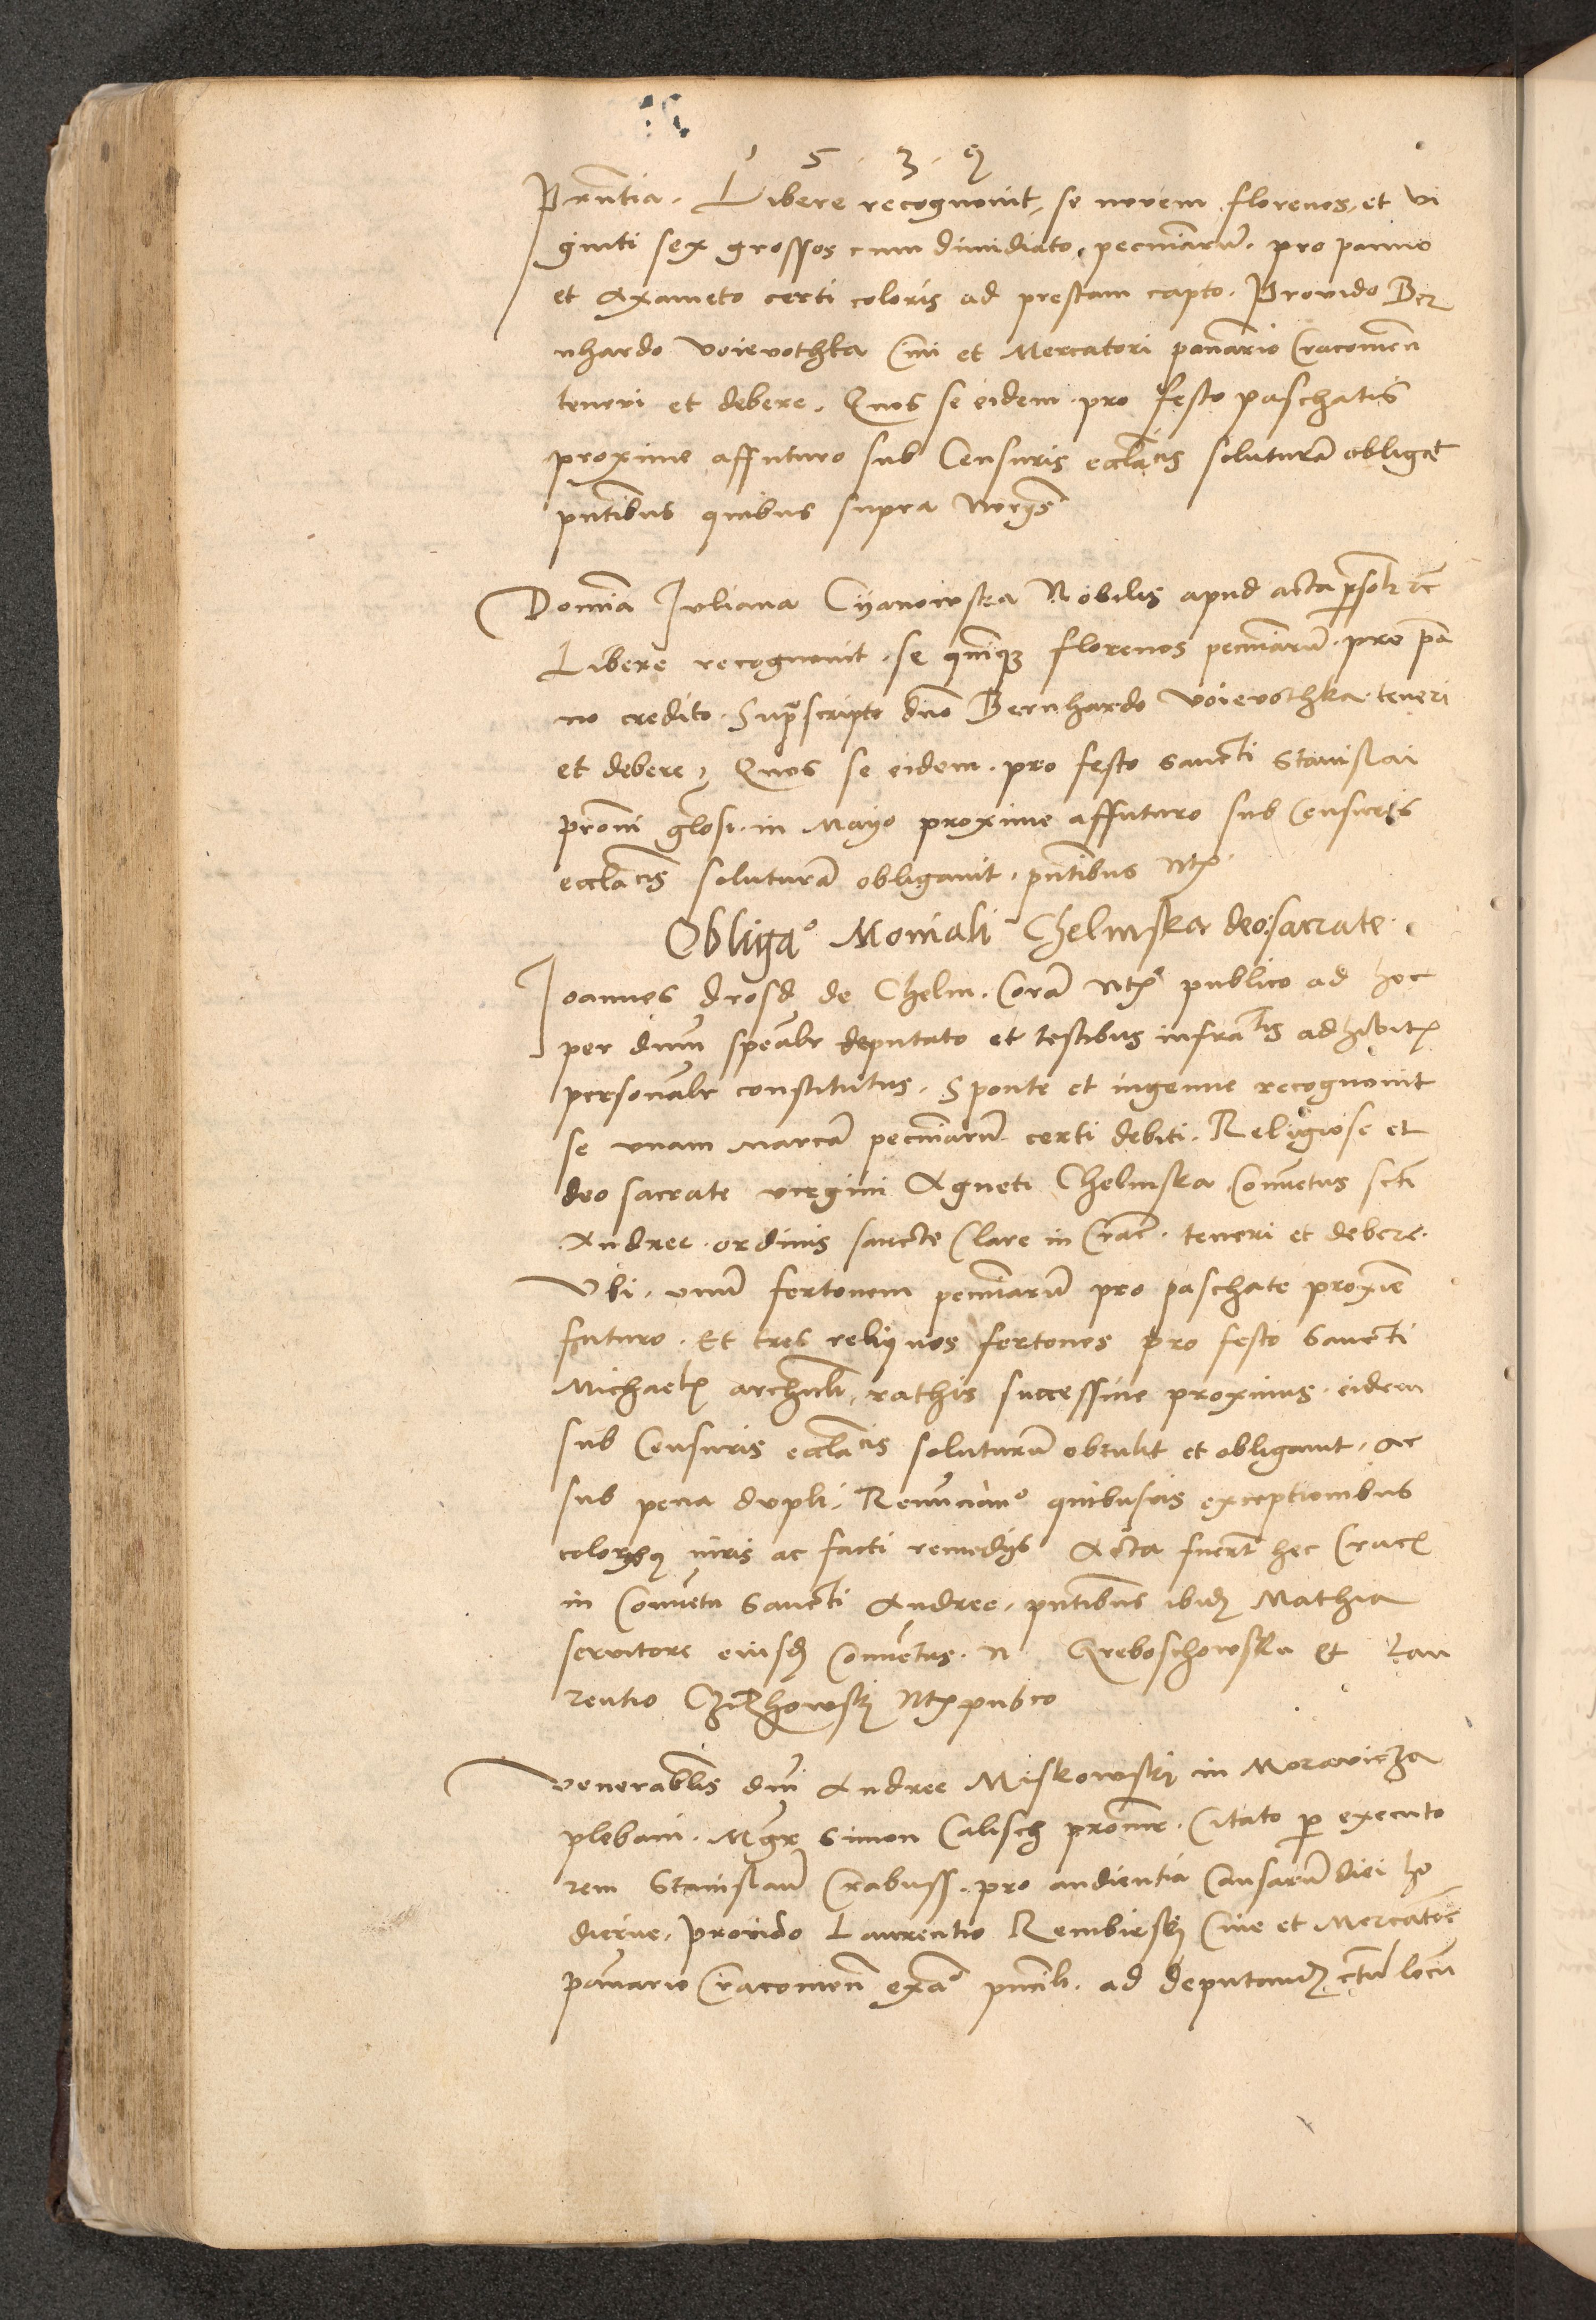 1 5 · 3 · 9
Prńtia. Libere recognovit, se novem florenos, et vi
ginti sex grossos cum dimidiato, pecuniarũ. pro panno
et Axameto certi coloris ad prestam capto. Provido Ber
nhardo Voievothka Civi et Mercatori pannario Cracovieñ
teneri et debere. Quos se eidem pro festo paschatis
proxime affuturo sub Censuris ecclãcis soluturã obligat
pñtibus quibus supra
Domina Juliana Cyanowska Nobilis apud acta
Libere recognovit. se quinqz florenos pecuniarũ. pro pã
no credito. Suprascripto dño Bernhardo Voievothka. teneri
et debere, Quos se eidem. pro festo sancti Stanislai
prõni glosi. in Mayo proxime affuturo sub Censuris
ecclãcis soluturã obligavit. pñtibus
Obligaº Moniali Chelmska deo sacrate.
Joannes drosd de Chelm. Corã publico ad hoc
per dnum deputato et testibus infratis adhibitis
personalr constitutus. Sponte et ingenue recognovit
se unam marcã pecuniarũ certi debiti. Religiose et
deo sacrate virgini Agneti Chelmska Convẽtus scti
Andree. ordinis sancte Clare in Crac. teneri et debere.
Ubi. unũ fertonem pecuniarũ pro paschate proxĩe
futuro. Et tres reliquos fertones pro festo Sancti
Michaelis archãli, rathis successive proximis. eidem
sub Censuris ecclãcis soluturũ obtulit et obligavit. ac
sub pena dupli. Renunciañº quibusvis exceptionibus
coloribus iuris ac facti remedijs Acta fuerũt hec Crac
in Convẽtu Sancti Andree. pñtibus ibidẽ Mathia
servitore eiusdẽ Convẽtus. N Greboschowska et Lau
rentio pubco
Venerablis dni Andree Miskowskj in Moravicza
plebani. Mgr Simon Calisch procur. Citato p executo
rem Stanislaũ Crabuss. pro audientia Causarũ diei ho
dierne. provido Laurentio Rembieskj Cive et Mercatore
pañario Cracovieñ ad deputandũ locũ